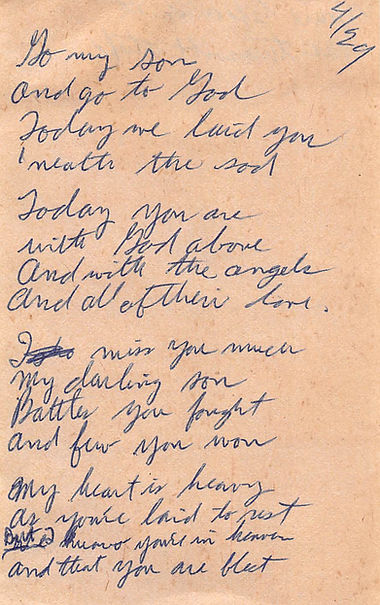 4/29
Go my son
And go to God
Today we laid you
'neath the sod
Today you are
with God above
And with the angels
And all of their love.
I miss you much
My darling son
Battles you fought
and few you won
My heart is heavy
as you're laid to rest
But I know you're in heaven
and that you are blest